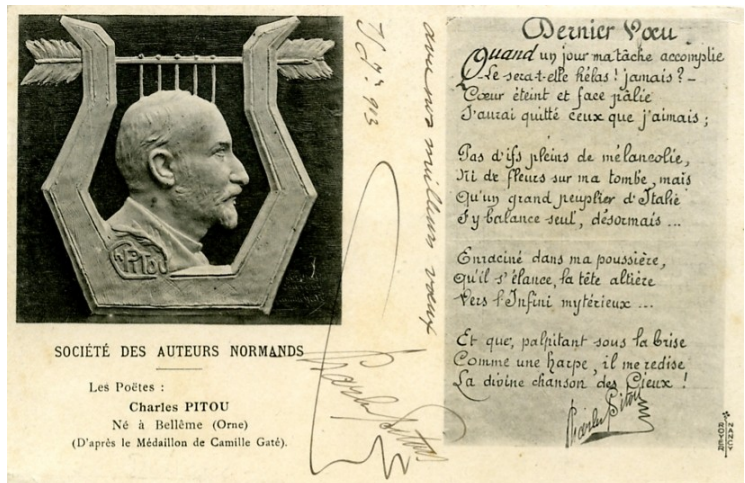 Ch Pitou
SOCIÉTÉ DES AUTEURS NORMANDS
Les Poëtes :
Charles PITOU
Né à Bellême (Orne)
(D'après le Médaillon de Camille Gaté).
avec nos meilleurs vœux
913
Charles Pitou
Dernier Vœu
Quand un jour ma tâche accomplie
– Le sera-t-elle hélas ! jamais ? –
Cœur éteint et face pâlie
J'aurai quitté ceux que j'aimais ;
Pas d'ifs pleins de mélancolie,
Ni de fleurs sur ma tombe, mais
Qu'un grand peuplier d'Italie
S'y balance seul, désormais ...
Enraciné dans ma poussière,
Qu'il s'élance, la tête altière
Vers l'Infini mytérieux ...
Et que, palpitant sous la brise
Comme une harpe, il me redise
La divine chanson des Cieux !
Charles Pitou
ROYER
NANCY